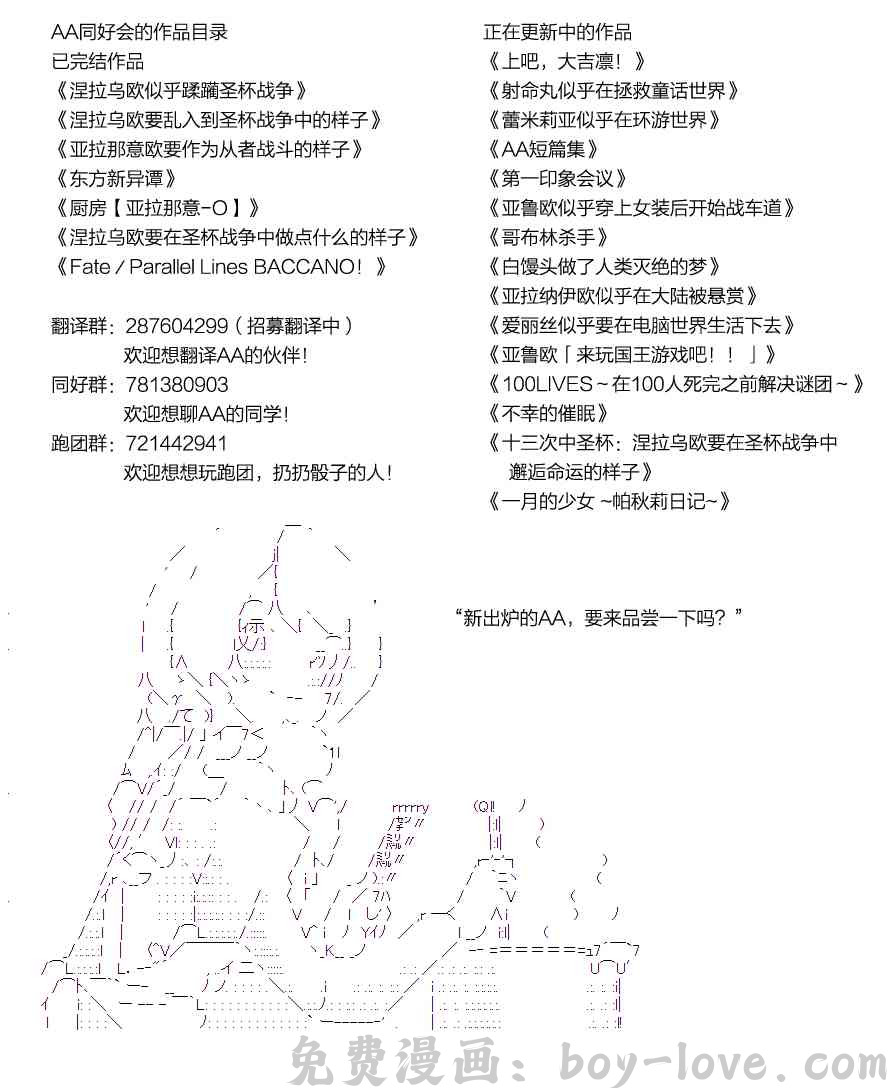 AA同好会的作品目录
已完结作品
《涅拉乌欧似乎蹂躏圣杯战争》
《涅拉乌欧要乱入到圣杯战争中的样子》
《亚拉那意欧要作为从者战斗的样子》
《东方新异谭》
《厨房【亚拉那意-O】》
《涅拉乌欧要在圣杯战争中做点什么的样子》
《Fate／Parallel Lines BACCANO！》
翻译群：287604299（招募翻译中）
欢迎想翻译AA的伙伴！
同好群：781380903
欢迎想聊AA的同学！
跑团群：721442941
欢迎想想玩跑团，扔扔骰子的人！
正在更新中的作品
《上吧，大吉凛！》
《射命丸似乎在拯救童话世界》
《蕾米莉亚似乎在环游世界》
《AA短篇集》
《第一印象会议》
《亚鲁欧似乎穿上女装后开始战车道》
《哥布林杀手》
《白馒头做了人类灭绝的梦》
《亚拉纳伊欧似乎在大陆被悬赏》
《爱丽丝似乎要在电脑世界生活下去》
《亚鲁欧「来玩国王游戏吧！！」》
《100LIVES～在100人死完之前解决谜团～》
《不幸的催眠》
《十三次中圣杯：涅拉乌欧要在圣杯战争中
邂逅命运的样子》
《一月的少女 ~帕秋莉日记~》
“新出炉的AA，要来品尝一下吗？”
免费漫画：boy-love.com